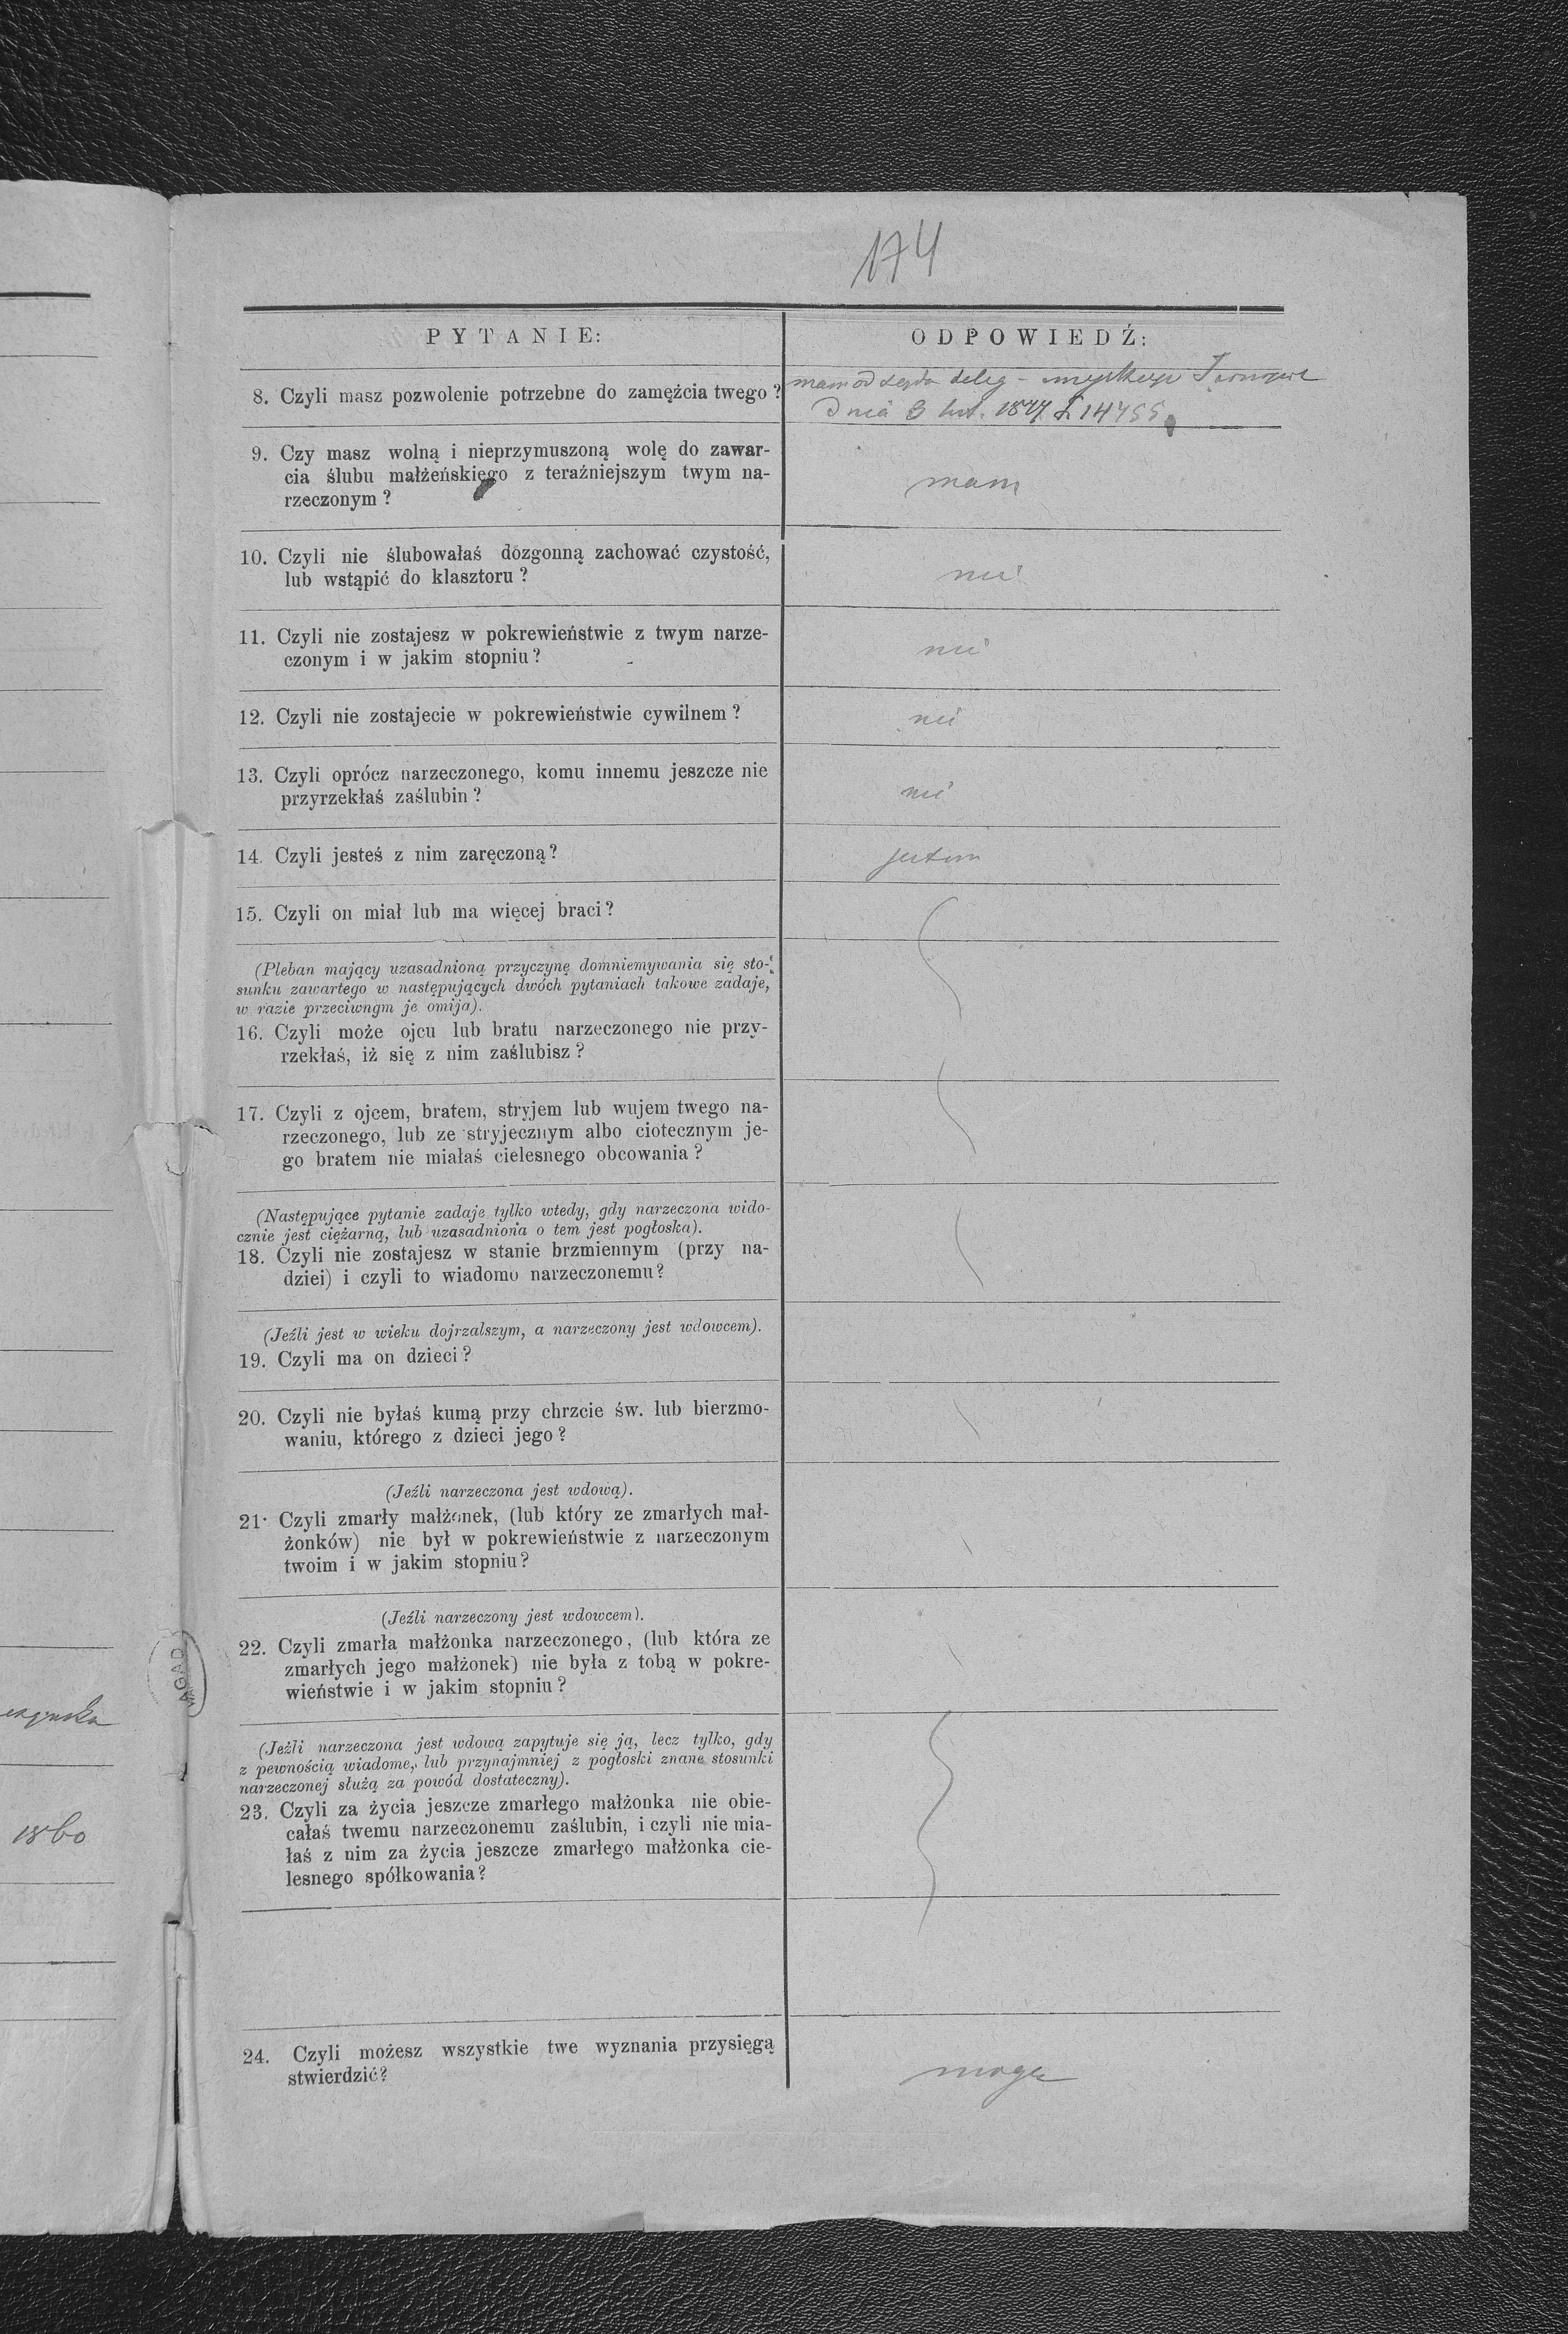 174
PYTANIE: ODPOWIEDŹ:
8. Czyli masz pozwolenie potrzebne do zamężcia twego? mam od sądu deleg - miejskiego
Dnia 3 lut. 1877 L 14755
9. Czy masz wolną i nieprzymuszoną wolę do zawar-
cia ślubu małżeńskiego z teraźniejszym twym na-
rzeczonym?
mam
10. Czyli nie ślubowałaś dozgonną zachować czystość,
lub wstąpić do klasztoru?
nie
11. Czyli nie zostajesz w pokrewieństwie z twym narze-
czonym i w jakim stopniu?
nie
12. Czyli nie zostajecie w pokrewieństwie cywilnem?
nie
13. Czyli oprócz narzeczonego, komu innemu jeszcze nie
przyrzekłaś zaślubin?
nie
14. Czyli jesteś z nim zaręczoną?
jestem
15. Czyli on miał lub ma więcej braci?
(Pleban mający uzasadnioną przyczynę domniemywania się sto-
sunku zawartego w następujących dwóch pytaniach takowe zadaje,
w razie przeciwngm je omija).
16. Czyli może ojcu lub bratu narzeczonego nie przy-
rzekłaś, iż się z nim zaślubisz?
17. Czyli z ojcem, bratem, stryjem lub wujem twego na-
rzeczonego, lub ze stryjecznym albo ciotecznym je-
go bratem nie miałaś cielesnego obcowania?
(Następujące pytanie zadaje tylko wtedy, gdy narzeczona wido-
cznie jest ciężarną, lub uzasadniona o tem jest pogłoska).
18. Czyli nie zostajesz w stanie brzmiennym (przy na-
dziei) i czyli to wiadomo narzeczonemu?
(Jeźli jest w wieku dojrzalszym, a narzeczony jest wdowcem).
19. Czyli ma on dzieci?
20. Czyli nie byłaś kumą przy chrzcie św. lub bierzmo-
waniu, którego z dzieci jego?
(Jeźli narzeczona jest wdową).
21. Czyli zmarły małżonek, (lub który ze zmarłych mał-
żonków) nie był w pokrewieństwie z narzeczonym
twoim i w jakim stopniu?
(Jeźli narzeczony jest wdowcem).
22. Czyli zmarła małżonka narzeczonego, (lub która ze
zmarłych jego małżonek) nie była z tobą w pokre-
wieństwie i w jakim stopniu?
(Jeźli narzeczona jest wdową zapytuje się ją, lecz tylko, gdy
z pewnością wiadome, lub przynajmniej z pogłoski znane stosunki
narzeczonej służą za powód dostateczny).
23. Czyli za życia jeszcze zmarłego małżonka nie obie-
całaś twemu narzeczonemu zaślubin, i czyli nie mia-
łaś z nim za życia jeszcze zmarłego małżonka cie-
lesnego spółkowania?
24. Czyli możesz wszystkie twe wyznania przysięgą
stwierdzić?
mogę
1860
AGAD